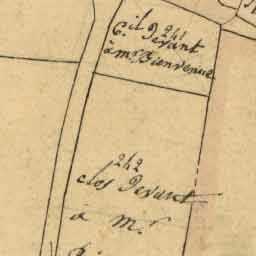 241
C. il Devant
à mr Bienvenue
242
clos Devant
à mr